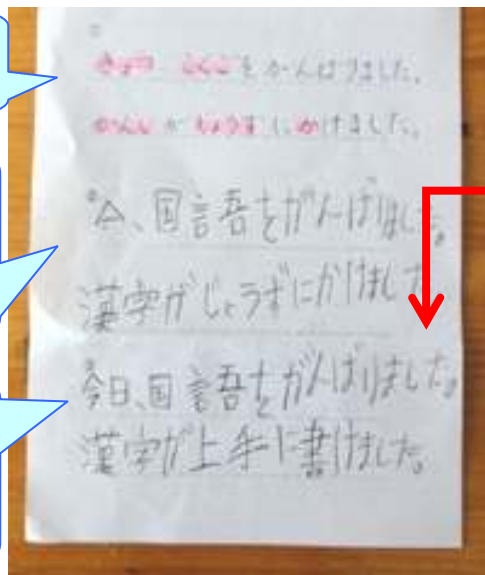 きょう こくごをがんばりました。
かんじがじょうずにかけました。
、国語をがんばりました。
漢字がじょうずにかけました
今日、国語をがんばりました。
漢字が上手に書けました。